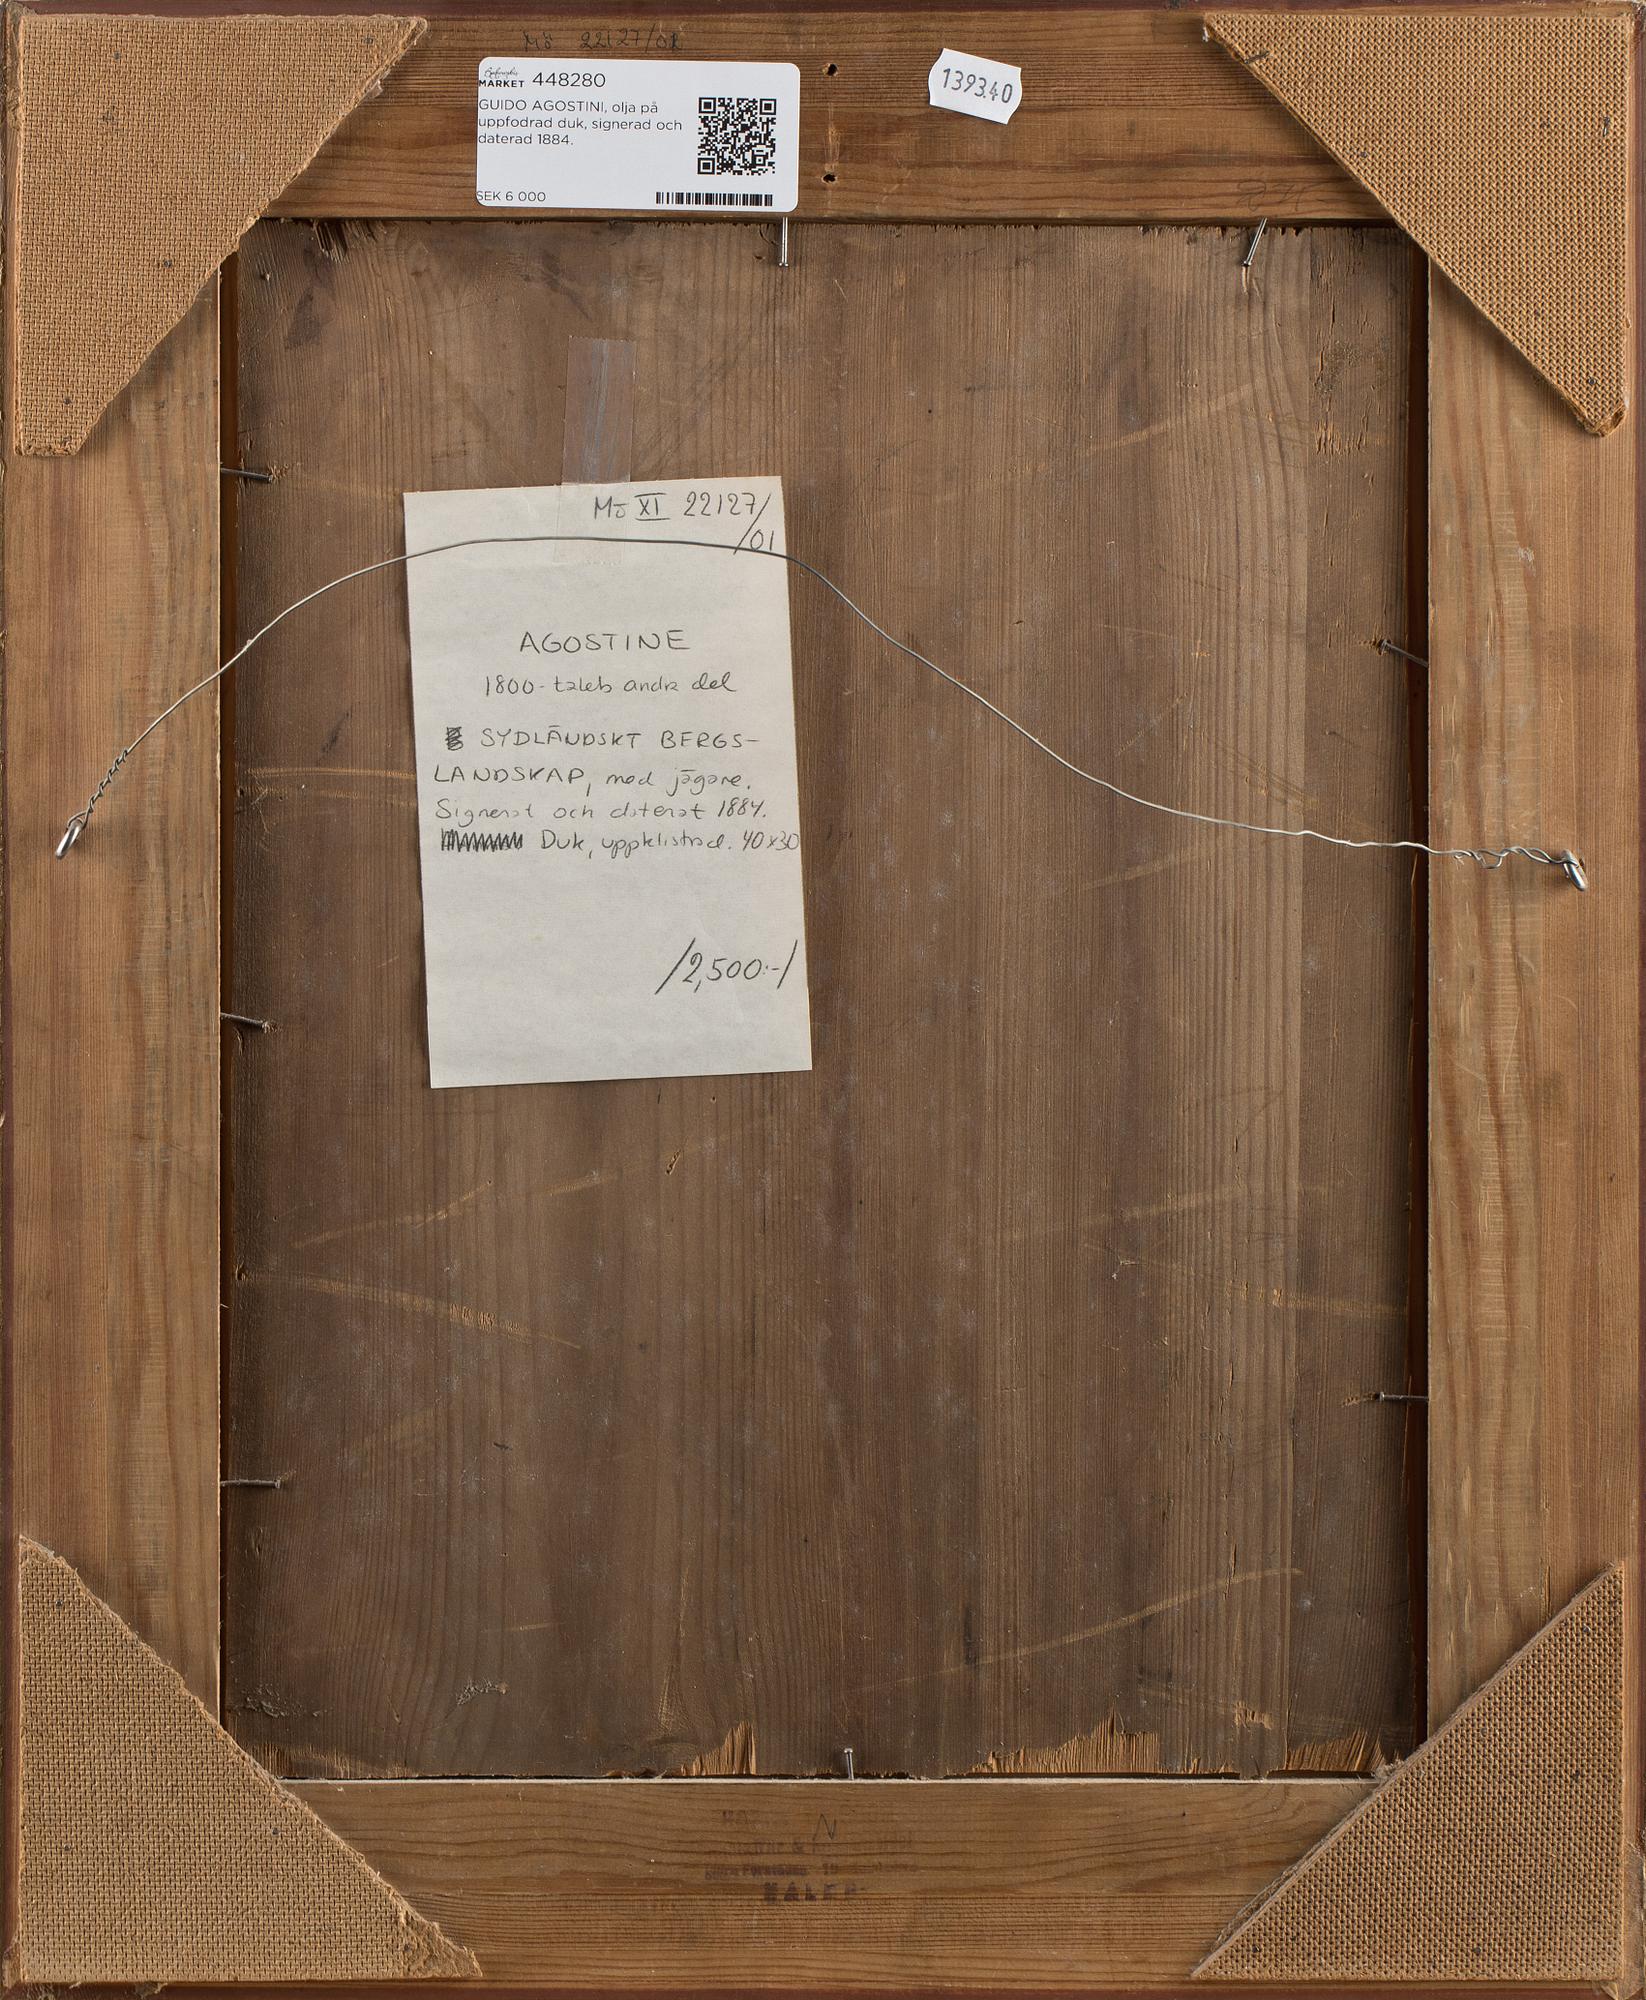 Mö 22127/01
Bukowskis
MARKET 448280
GUIDO AGOSTINI, olja på
uppfodrad duk, signerad och
daterad 1884.
SEK 6 000
1393.40
Mö XI 22127/
/01
AGOSTINE
1800-talets andra del
SYDLÄNDSKT BERGS-
LANDSKAP, med jägare.
Signerat och daterat 1884.
Duk, uppklistrad. 40x30
/2,500:-/
N
&
19